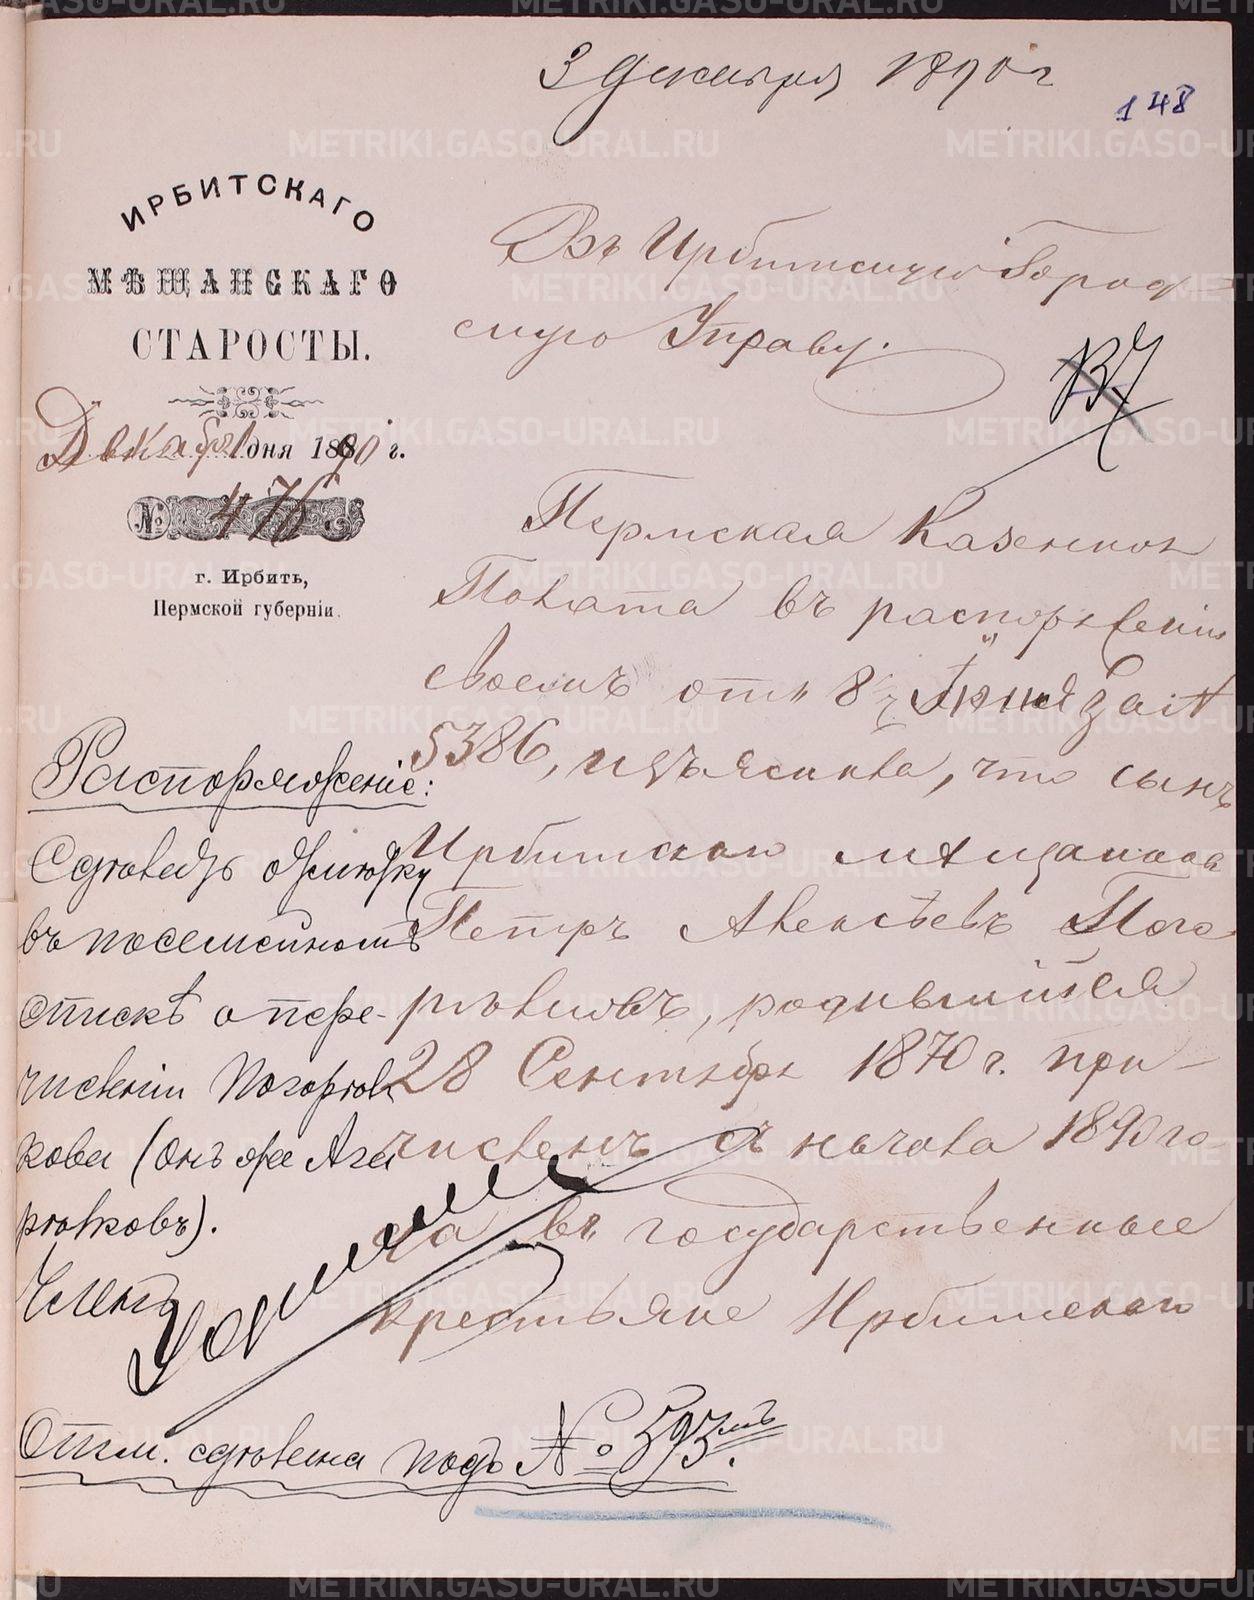 3 Декабря 1890 г
148
ИРБИТСКАГО
МѢЩАНСКАГО
СТАРОСТЫ.
Декабря дня 1890 г.
№ 476
г. Ирбить,
Пермской губерніи.
Въ Ирбитскую Город
скую Управу.
Пермская Казенная
Полата въ распоряженіи
своемъ отъ 8 за №
5386, изъяснила, что сынъ
Ирбитскаго мѣщанина
Петръ Алексѣевъ Пого
рѣлковъ, родившійся
28 Сентября 1870 г. при-
численъ съ начала 1890 го
да въ государственные
крестьяне Ирбитскаго
Распоряженіе:
Сдѣлать отмѣтку
въ посемейномъ
спискѣ о пере-
численіи Погорѣл
кова (онъ же Ага
рѣлковъ).
Членъ
Отм. сдѣлана подъ № 593мъ.
METRIKI.GASO-URAL.RU